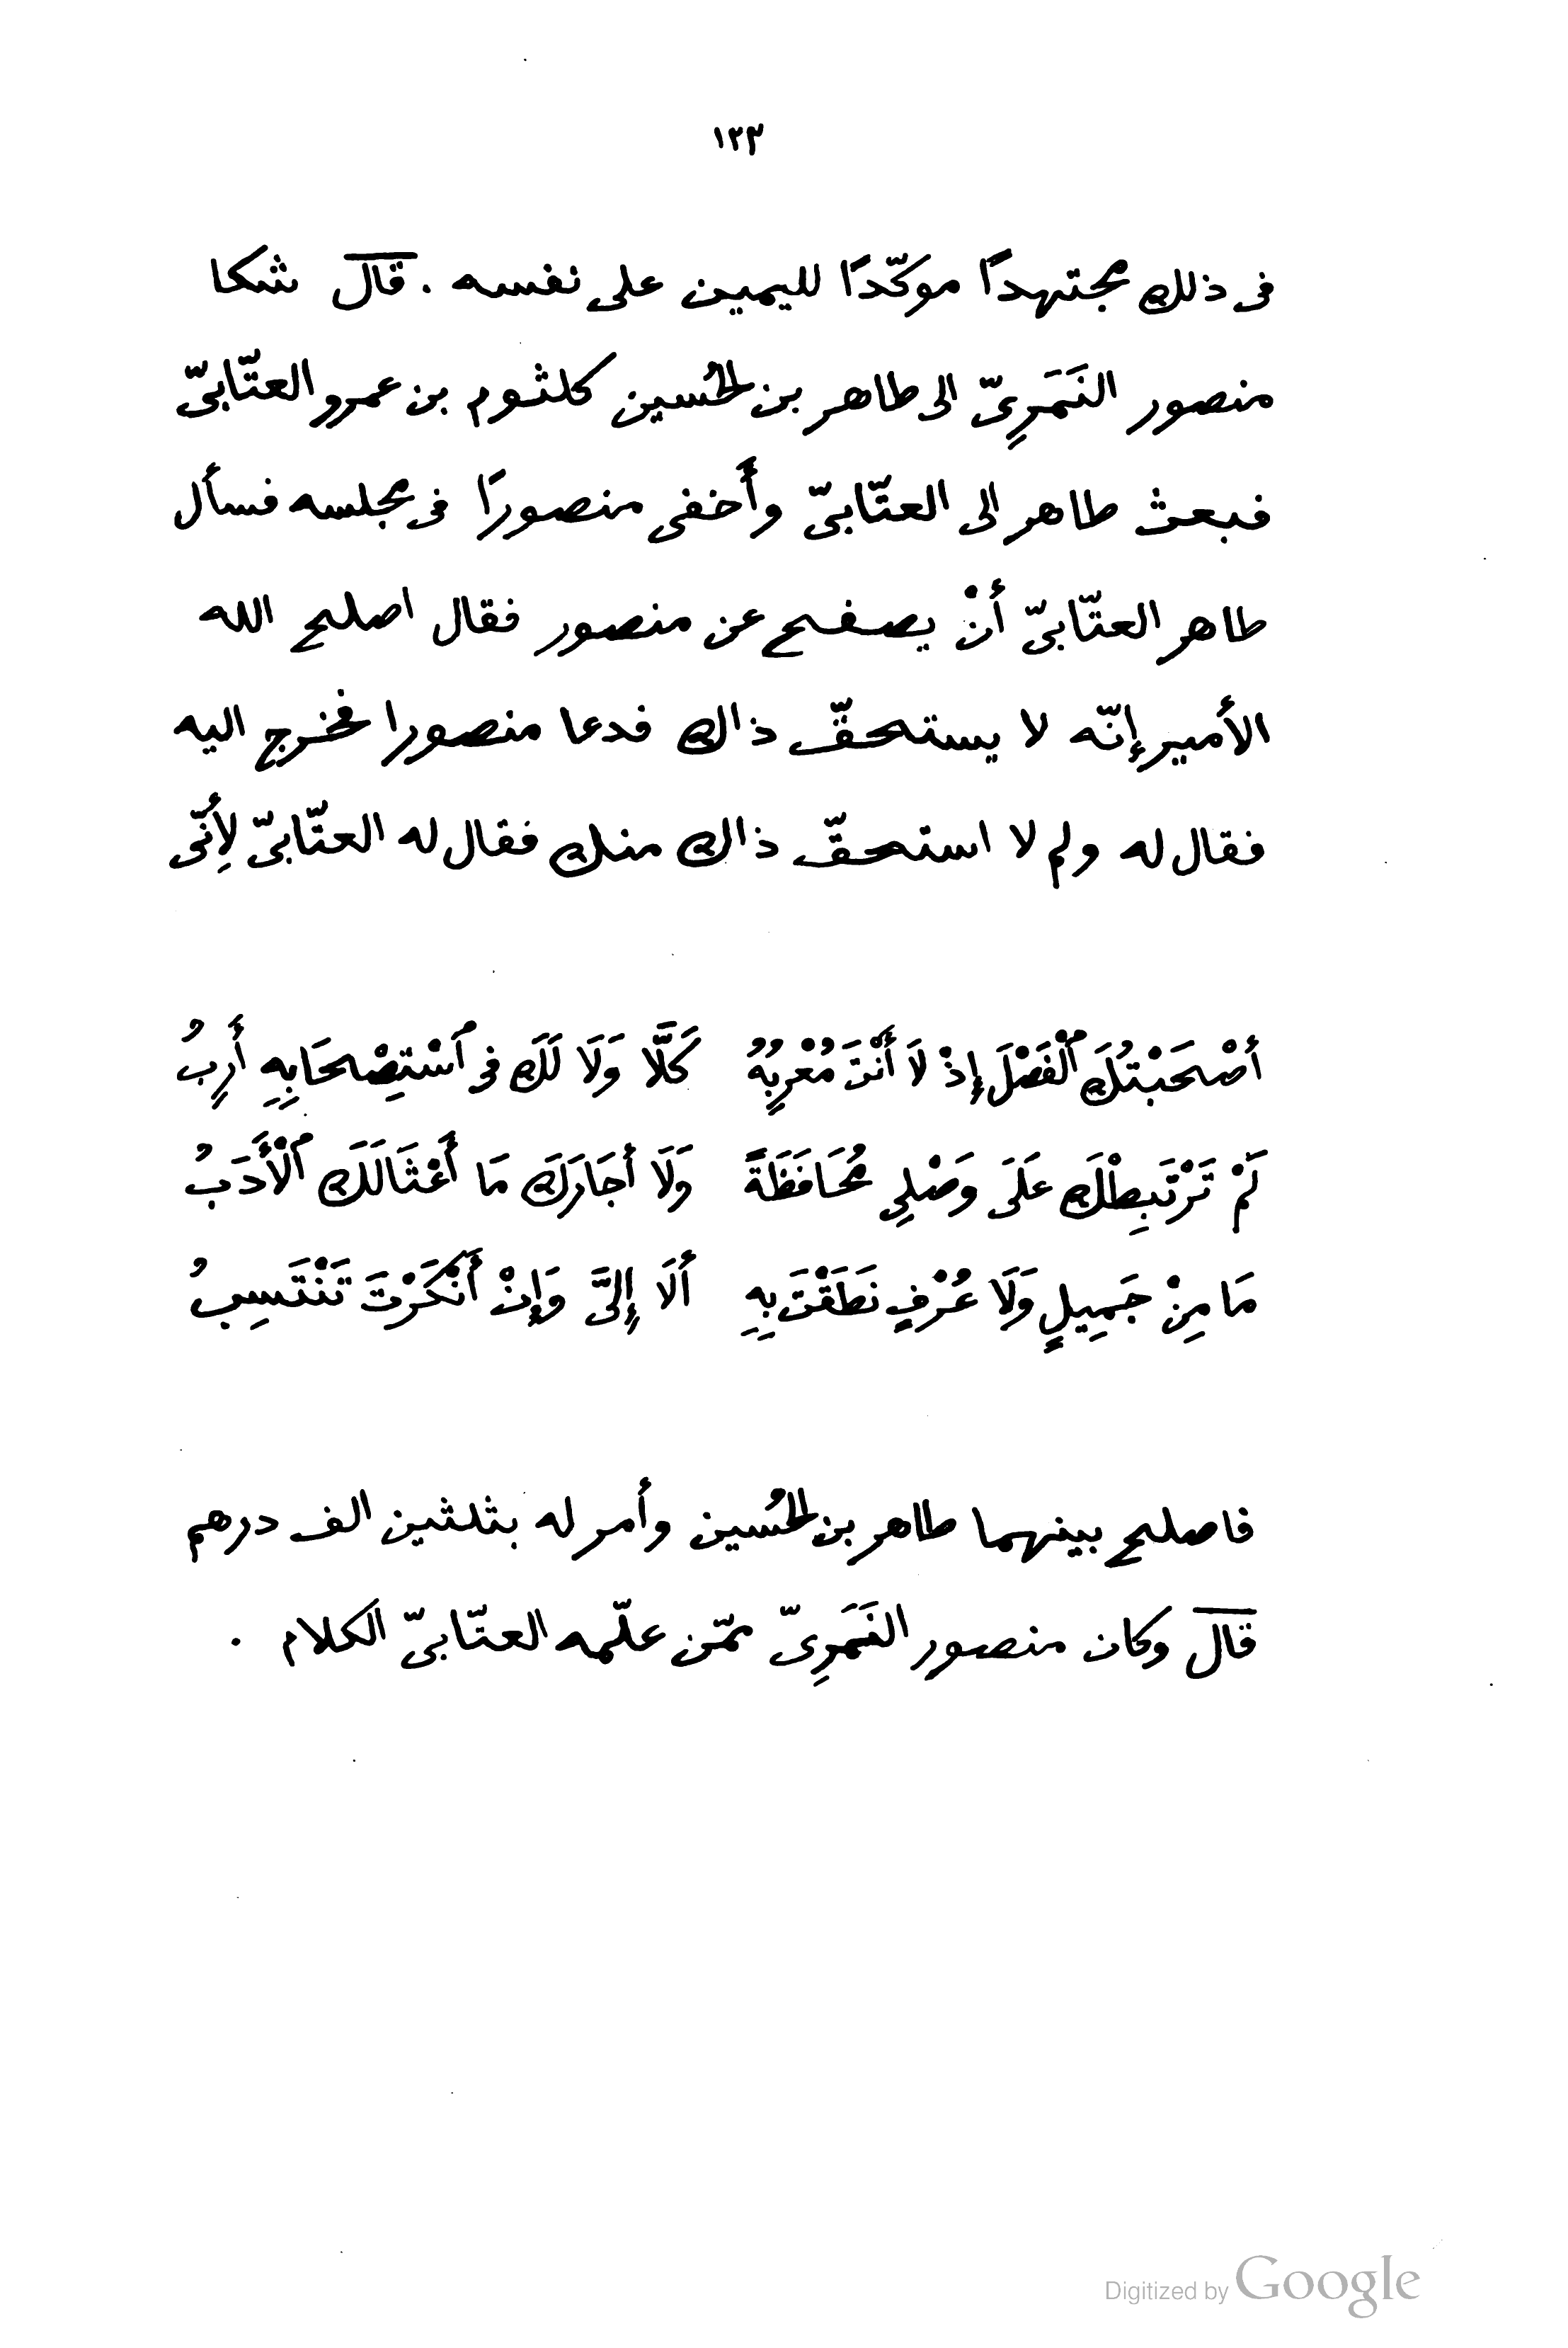 ١٢٣
فى ذلك مجتهدًا موكّدًا لليمين على نفسه . قال شكا
منصور النَمَرِىّ الى طاهر بن الحُسين كلثوم بن عمرو العتّابىّ
فبعث طاهر الى العتّابىّ وأَخفى منصورًا فى مجلسه فسأل
طاهر العتّابىّ أنْ يصفح عن منصور فقال اصلح الله
الأمير إنّه لا يستحقّ ذاك فدعا منصورا فخرج اليه
فقال له ولم لا استحقّ ذاك منك فقال له العتّابىّ لِأنّى
أصْحَبْتُكَ ٱلْفَضْلَ إِذْ لَا أَنْتَ مُعْرِبُهُ كَلَّا وَلَا لَكَ فى ٱسْتِصْحَابِهِ أَرِبُ
لَمْ تَرْتَبِطْكَ عَلَى وَصْلِي مُحَافَظَةً وَلَا أجَارَكَ مَا أغْثَالَكَ ٱلْأَدَبُ
مَا مِنْ جَمِيلٍ وَلَا عُرْفٍ نَطَقْتَ بِهِ ألَا إِلَىَّ وَإِنْ أَنْكَرْتَ تَنْتَسِبُ
فاصلح بينهما طاهر بن الحُسين وأمر له بثلثين الف درهم
قال وكان منصور النَمَرِىّ ممّن علّمه العتّابىّ الكلام .
Digitized by Google